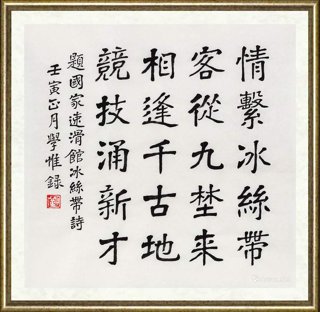 情繫冰絲帶
客從九埜来
相逢千古地
競技涌新才
題國家速滑館冰絲帶詩
壬寅正月學惟錄